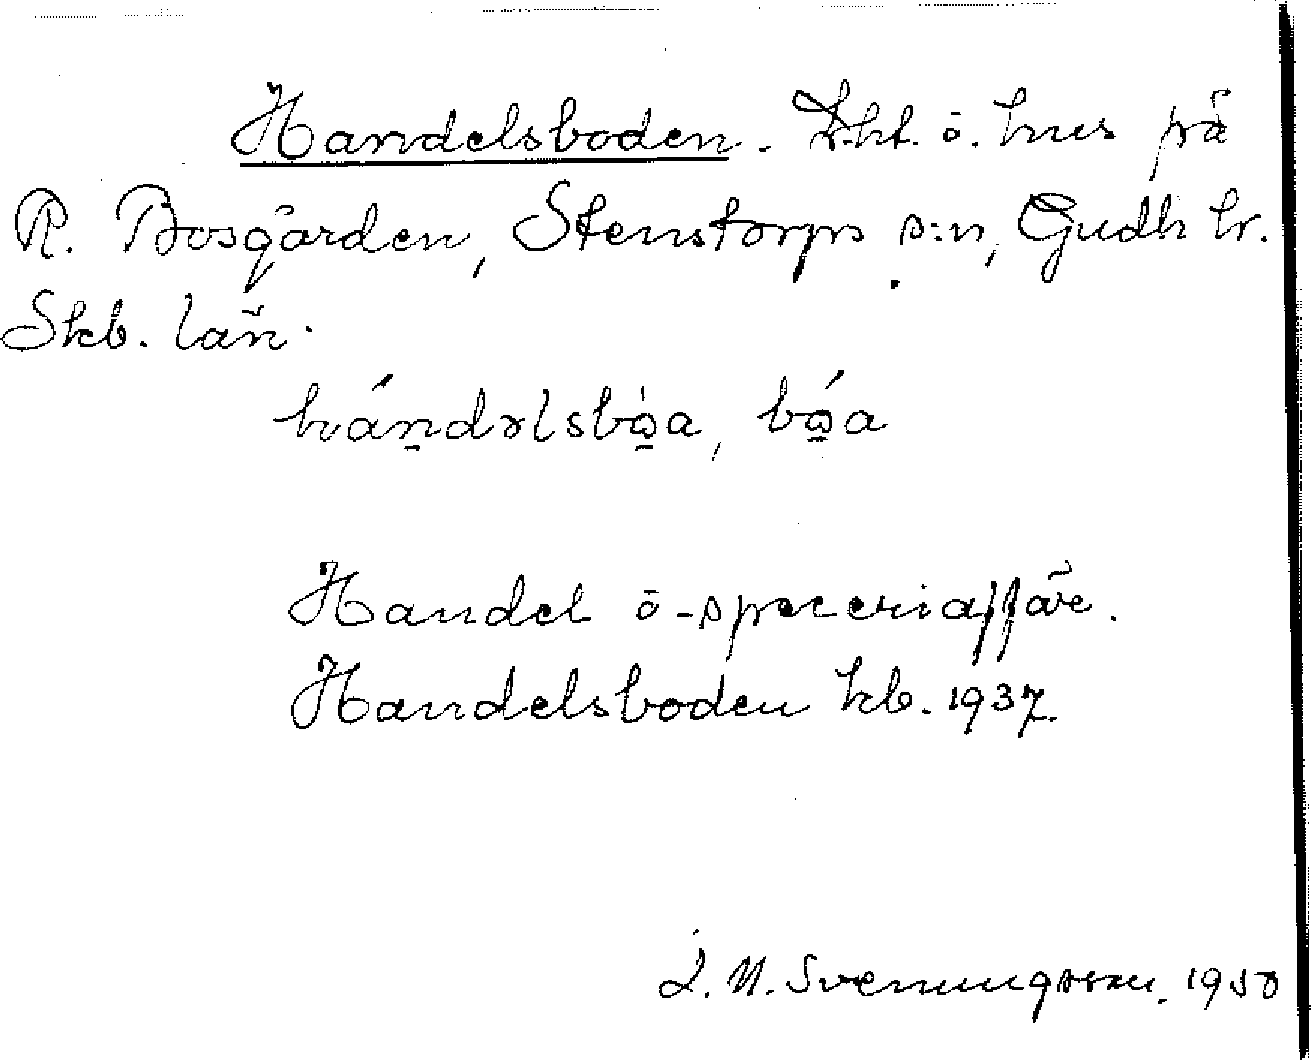 Handelsboden. Lht. o. hus på
R. Bosgården, Stenstorps s:n, Gudh hr.
Skb. län.
hándəlsbòa, bóa
Handel o- speceriaffär.
Handelsboden kb. 1937.
J. N. Svenungsson. 1950